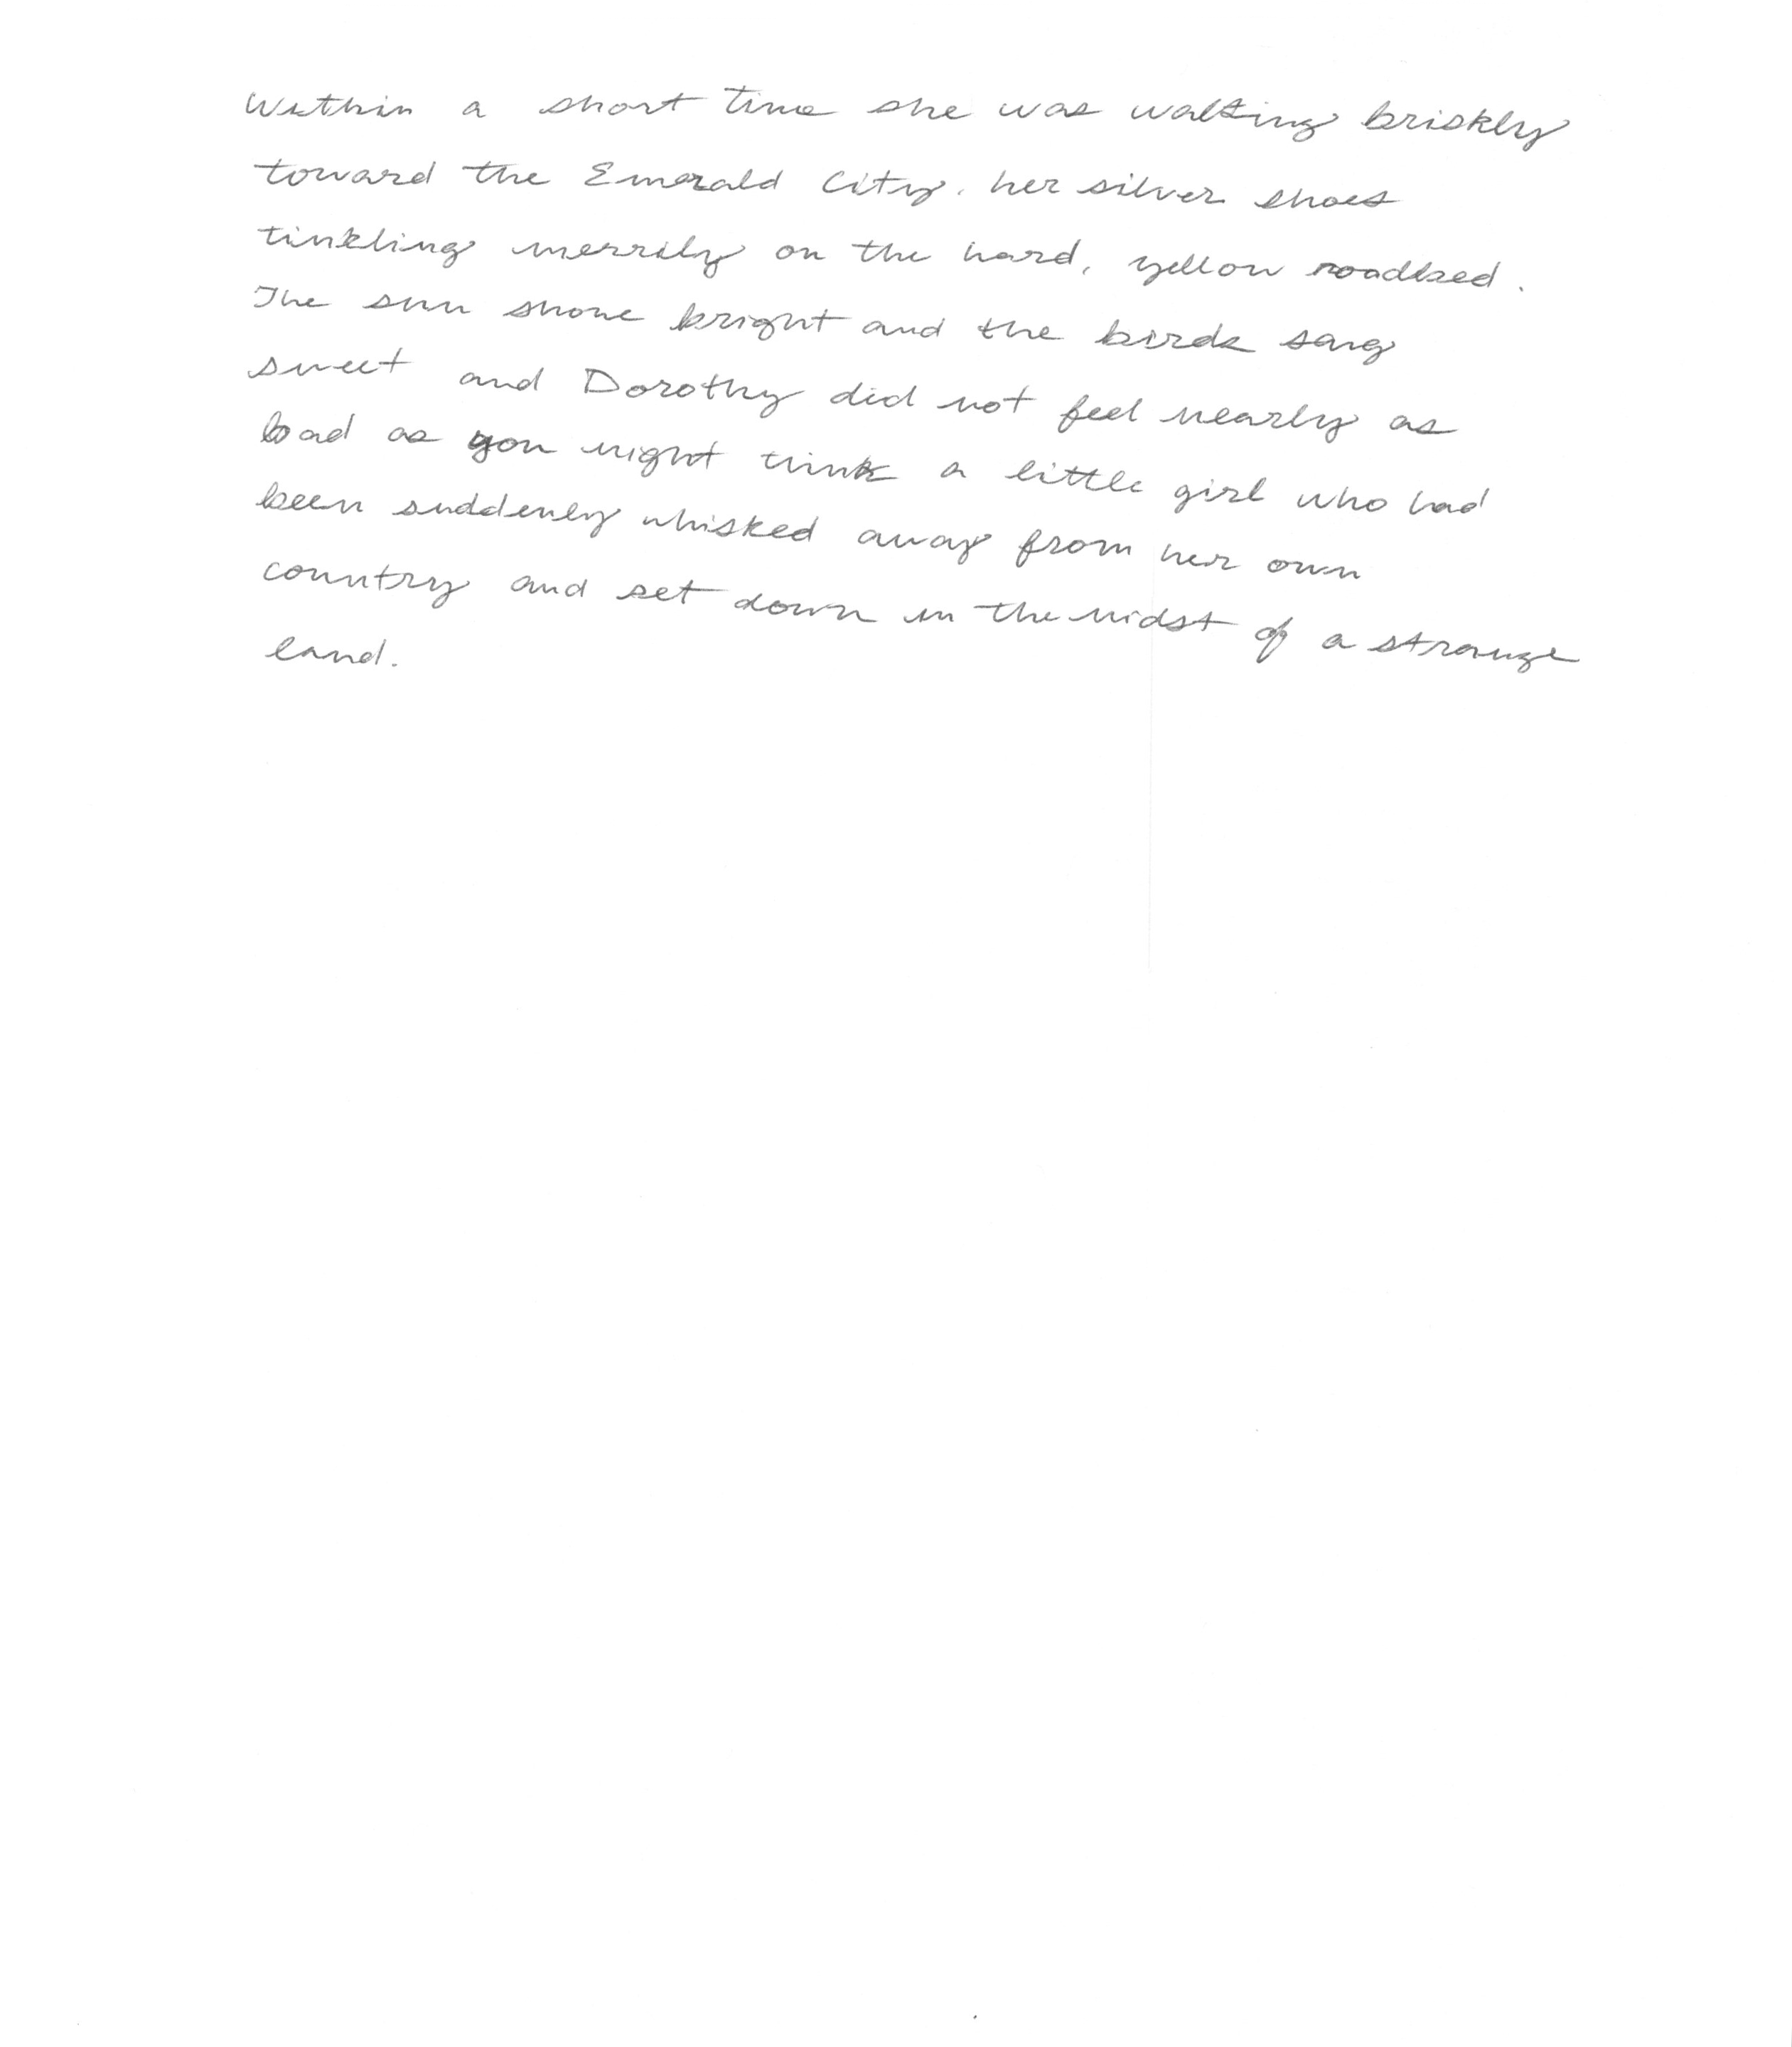 Within a short time she was walking briskly
toward the Emerald City, her silver shoes
tinkling merrily on the hard, yellow roadbed.
The sun shone bright and the birds sang
sweet and Dorothy did not feel nearly as
bad as you might think a little girl who had
been suddenly whisked away from her own
country and set down in the midst of a strange
land.